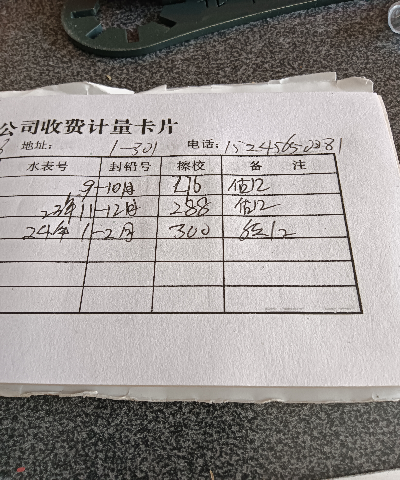 公司收费计量卡片
地址: 1-301 电话:
水表号 封铅号 擦校 备 注
9-10月 276 估12
23年11-12月 288 估12
24年1-2月 300 估12